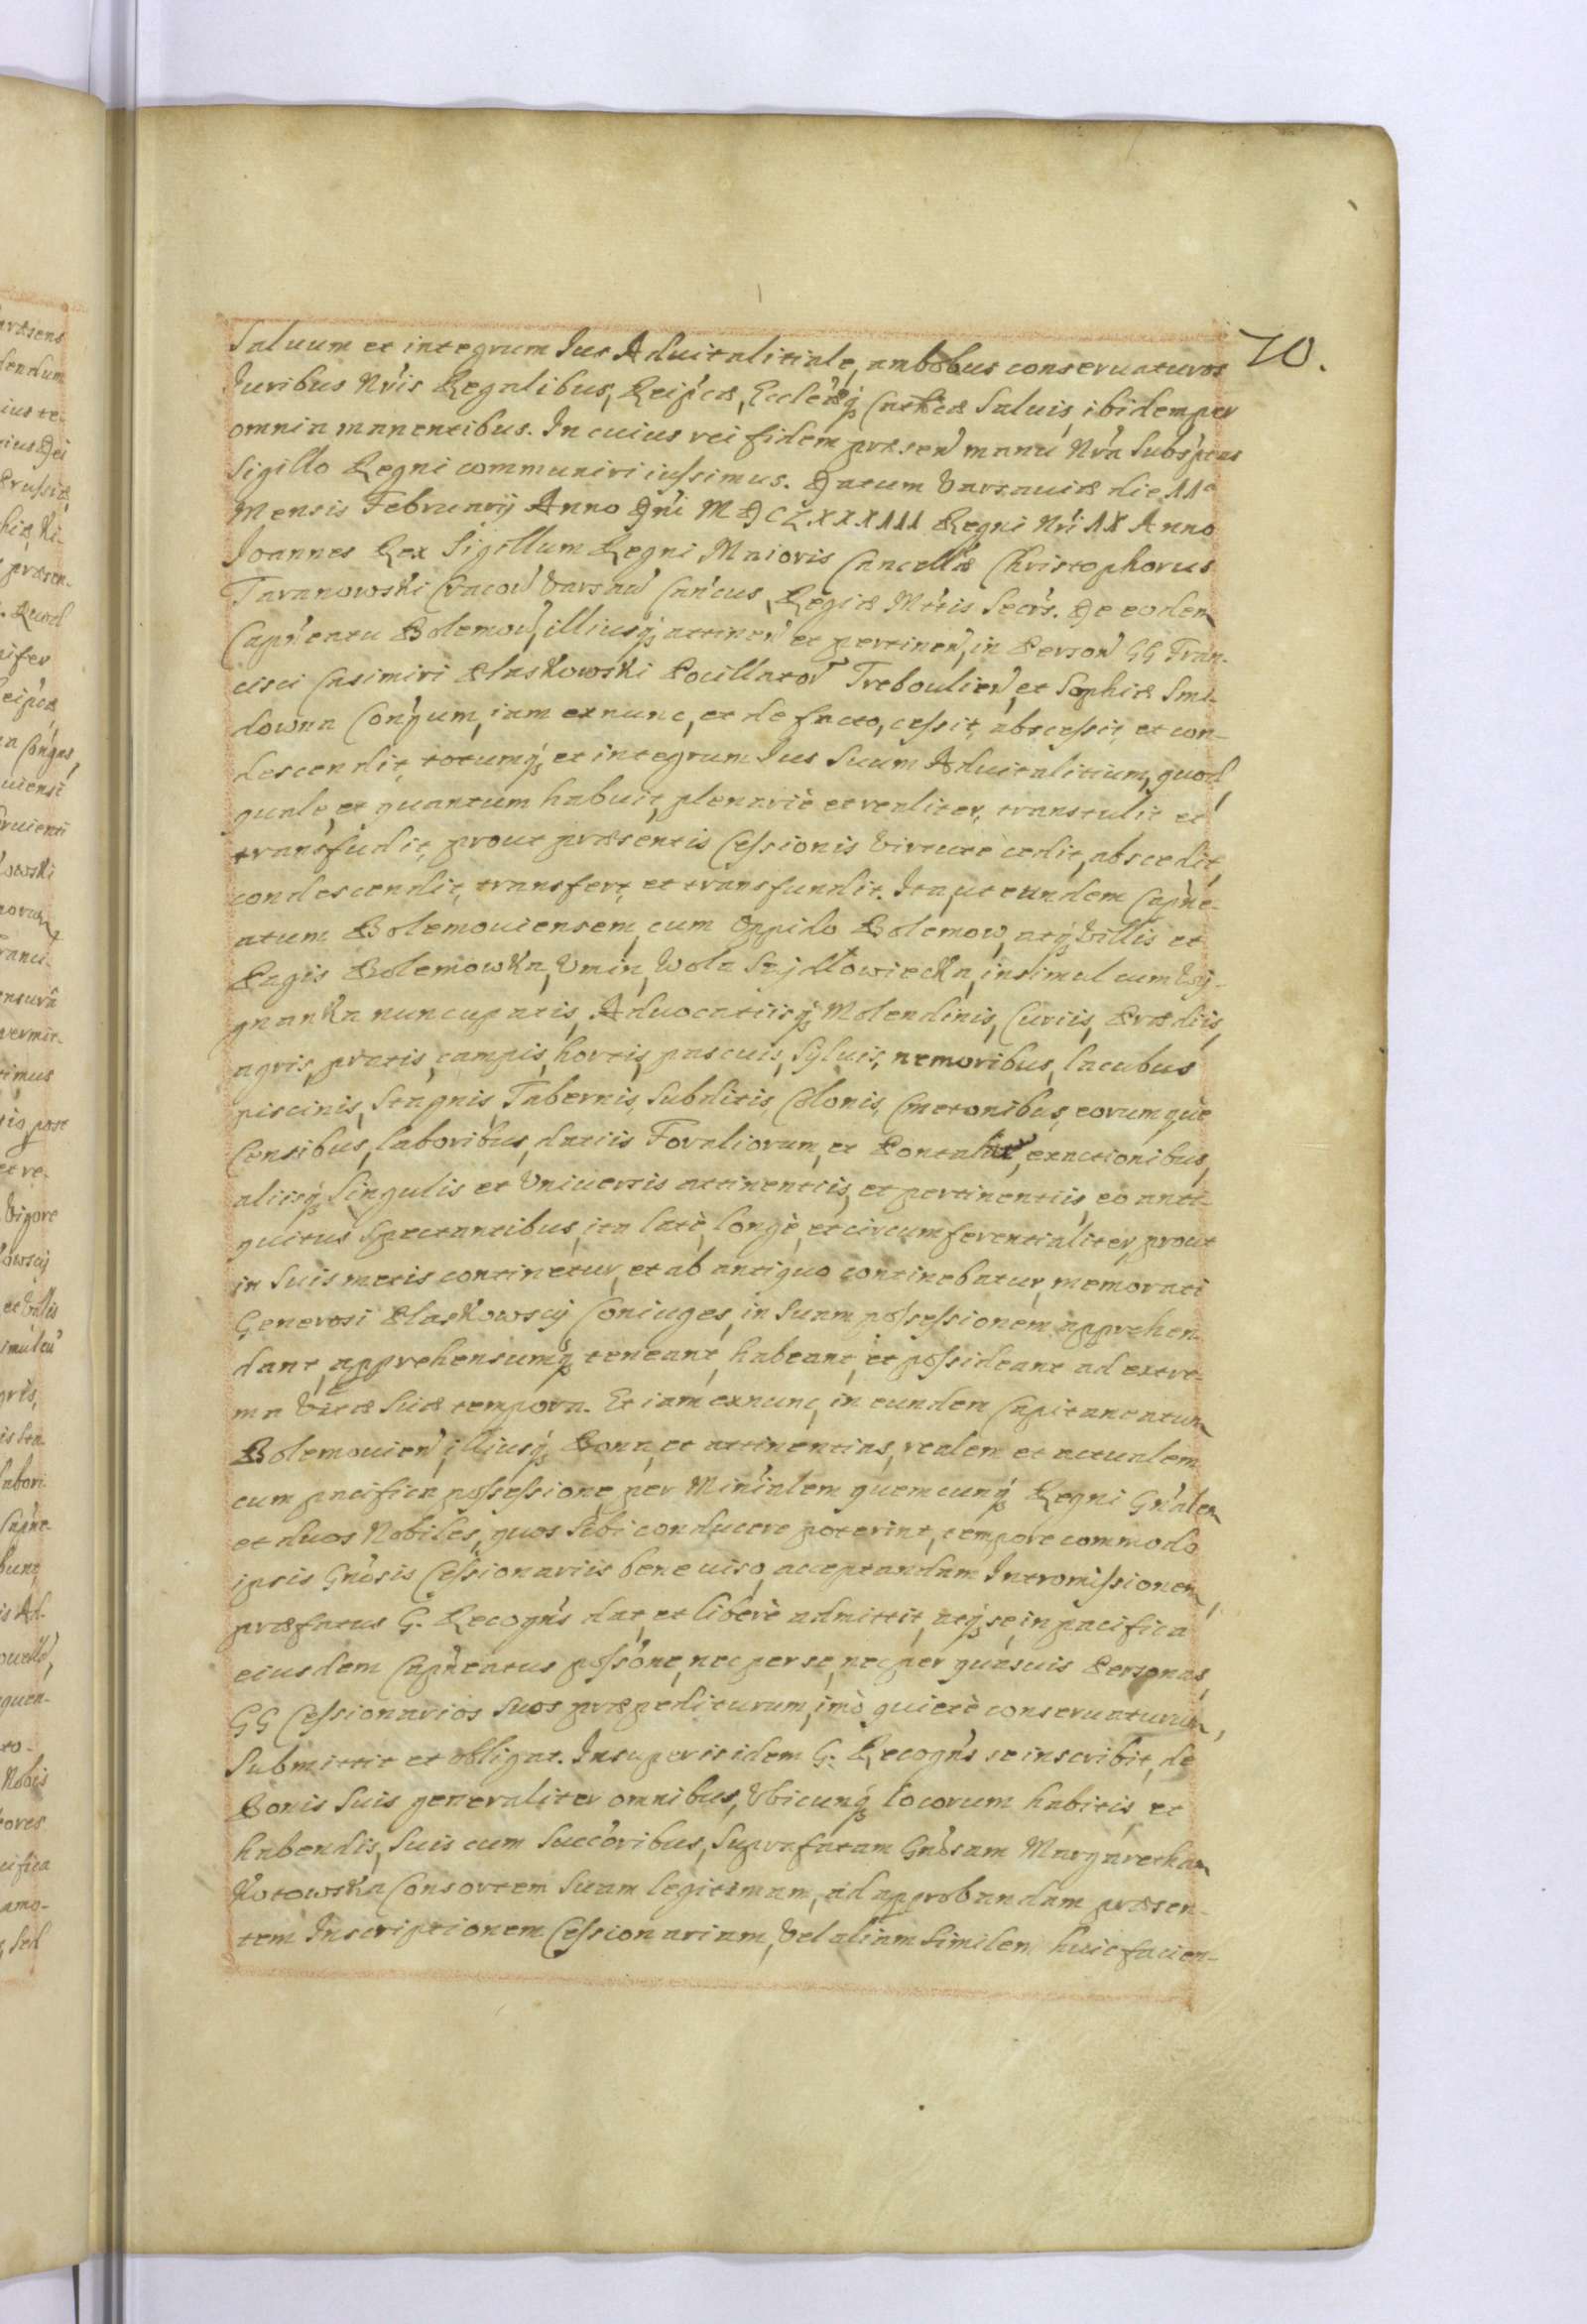 70.
Saluum et integrum Jus Aduitalitiale, ambobus conseruaturos
Juribus Nr̃is Regalibus, Reip̃cæ, Eccl̃æq́; Cathcæ Saluis, ibidem per
omnia manentibus. In cuius rei fidem præsen̄ manu Nr̃a Subsp̃tas
Sigillo Regni communiri iussimus. Datum Varsauiæ die 11ª
Mensis Februarij Anno Dñi MDCLXXXIII Regni Nr̃i IX Anno
Joannes Rex Sigillum Regni Maioris Cancell̃æ Christophorus
Taranowski Cracou̅ Varsau̅ Can̄cus, Regiæ Mt̃tis Secr̃s. De eodem
Capñeatu Bolemou̅, illiusq́; attinen̄ et pertinen̄, in Person̄ GG Fran-
cisci Casimiri Plaskowski Pocillator̄ Treboulien̄, et Sophiæ Smi-
downa Coñgum, iam exnunc, et de facto, cessit, abscessit, et con-
descendit, totumq́; et integrum Jus Suum Aduitalitium, quod,
quale, et quantum habuit, plenariè et realiter, transtulit et
transfudit, prout præsentis Cessionis Virtutè cedit, abscedit,
condescendit, transfert, et transfundit. Ita, ut eundem Capñe-
atum Bolemouiensem, cum Oppido Bolemow, atq́; Villis et
Pagis Bolemowka, Vmin, Wola Szydłowiecka, insimul cum Wy-
gnanka nuncupatis, Aduocatiisq́; Molendinis, Curiis, Prædiis,
agris, pratis, campis, hortis, pascuis, Syluis, nemoribus, lacubus
piscinis, Stagnis, Tabernis, Subditis, Colonis, Cmetonibus, eorumque
Censibus, laboribus, datiis Foraliorum, et Pontaliũ, exactionibus,
aliisq́; Singulis et Vniuersis attinentiis, et pertinentiis, eo anti-
quitus Spectantibus, ita latè, longè, et circumferentialiter, prout
in Suis metis continetur, et ab antiquo continebatur, memorati
Generosi Plaskowscy Coniuges, in Suam possessionem apprehen-
dant, apprehensumq́; teneant, habeant, et possideant ad extre-
ma Vitæ Suæ tempora. Et iam exnunc, in eundem Capitaneatum
Bolemouien̄, illiusq́; Bona, et attinentias, realem et actualem
cum pacifica possessione, per Min̄ialem quemcunq́; Regni Gñalem
et duos Nobiles, quos Sibi conducere poterint, tempore commodo
ipsis Gñosis Cessionariis bene uiso, acceptandam Intromissionem,
præfatus G. Recogñs dat, et liberè admittit, atq́; se, in pacifica
eiusdem Capñeatus poss̃one, nec per se, nec per quasuis Personas,
GG Cessionarios Suos præpediturum, imò quietè conseruaturum,
Submittit et obligat. Insuper is idem G. Recogñs se inscribit, de
Bonis Suis generaliter omnibus, Vbicunq́; locorum habitis, et
habendis, Suis cum Succ̃oribus, Suprafatam Gñosam Margaretham
Kotowska Consortem Suam legitimam, ad approbandam præsen-
tem Inscriptionem Cessionariam, Vel aliam Similem huic facien-